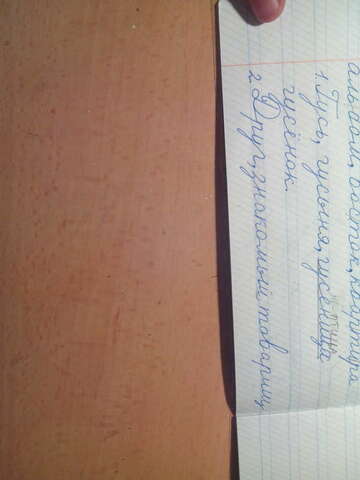 альбом, восток, квартира
1. Гусь, гусыня, гусеница
гусёнок.
2. Друг, знакомый товарищ,